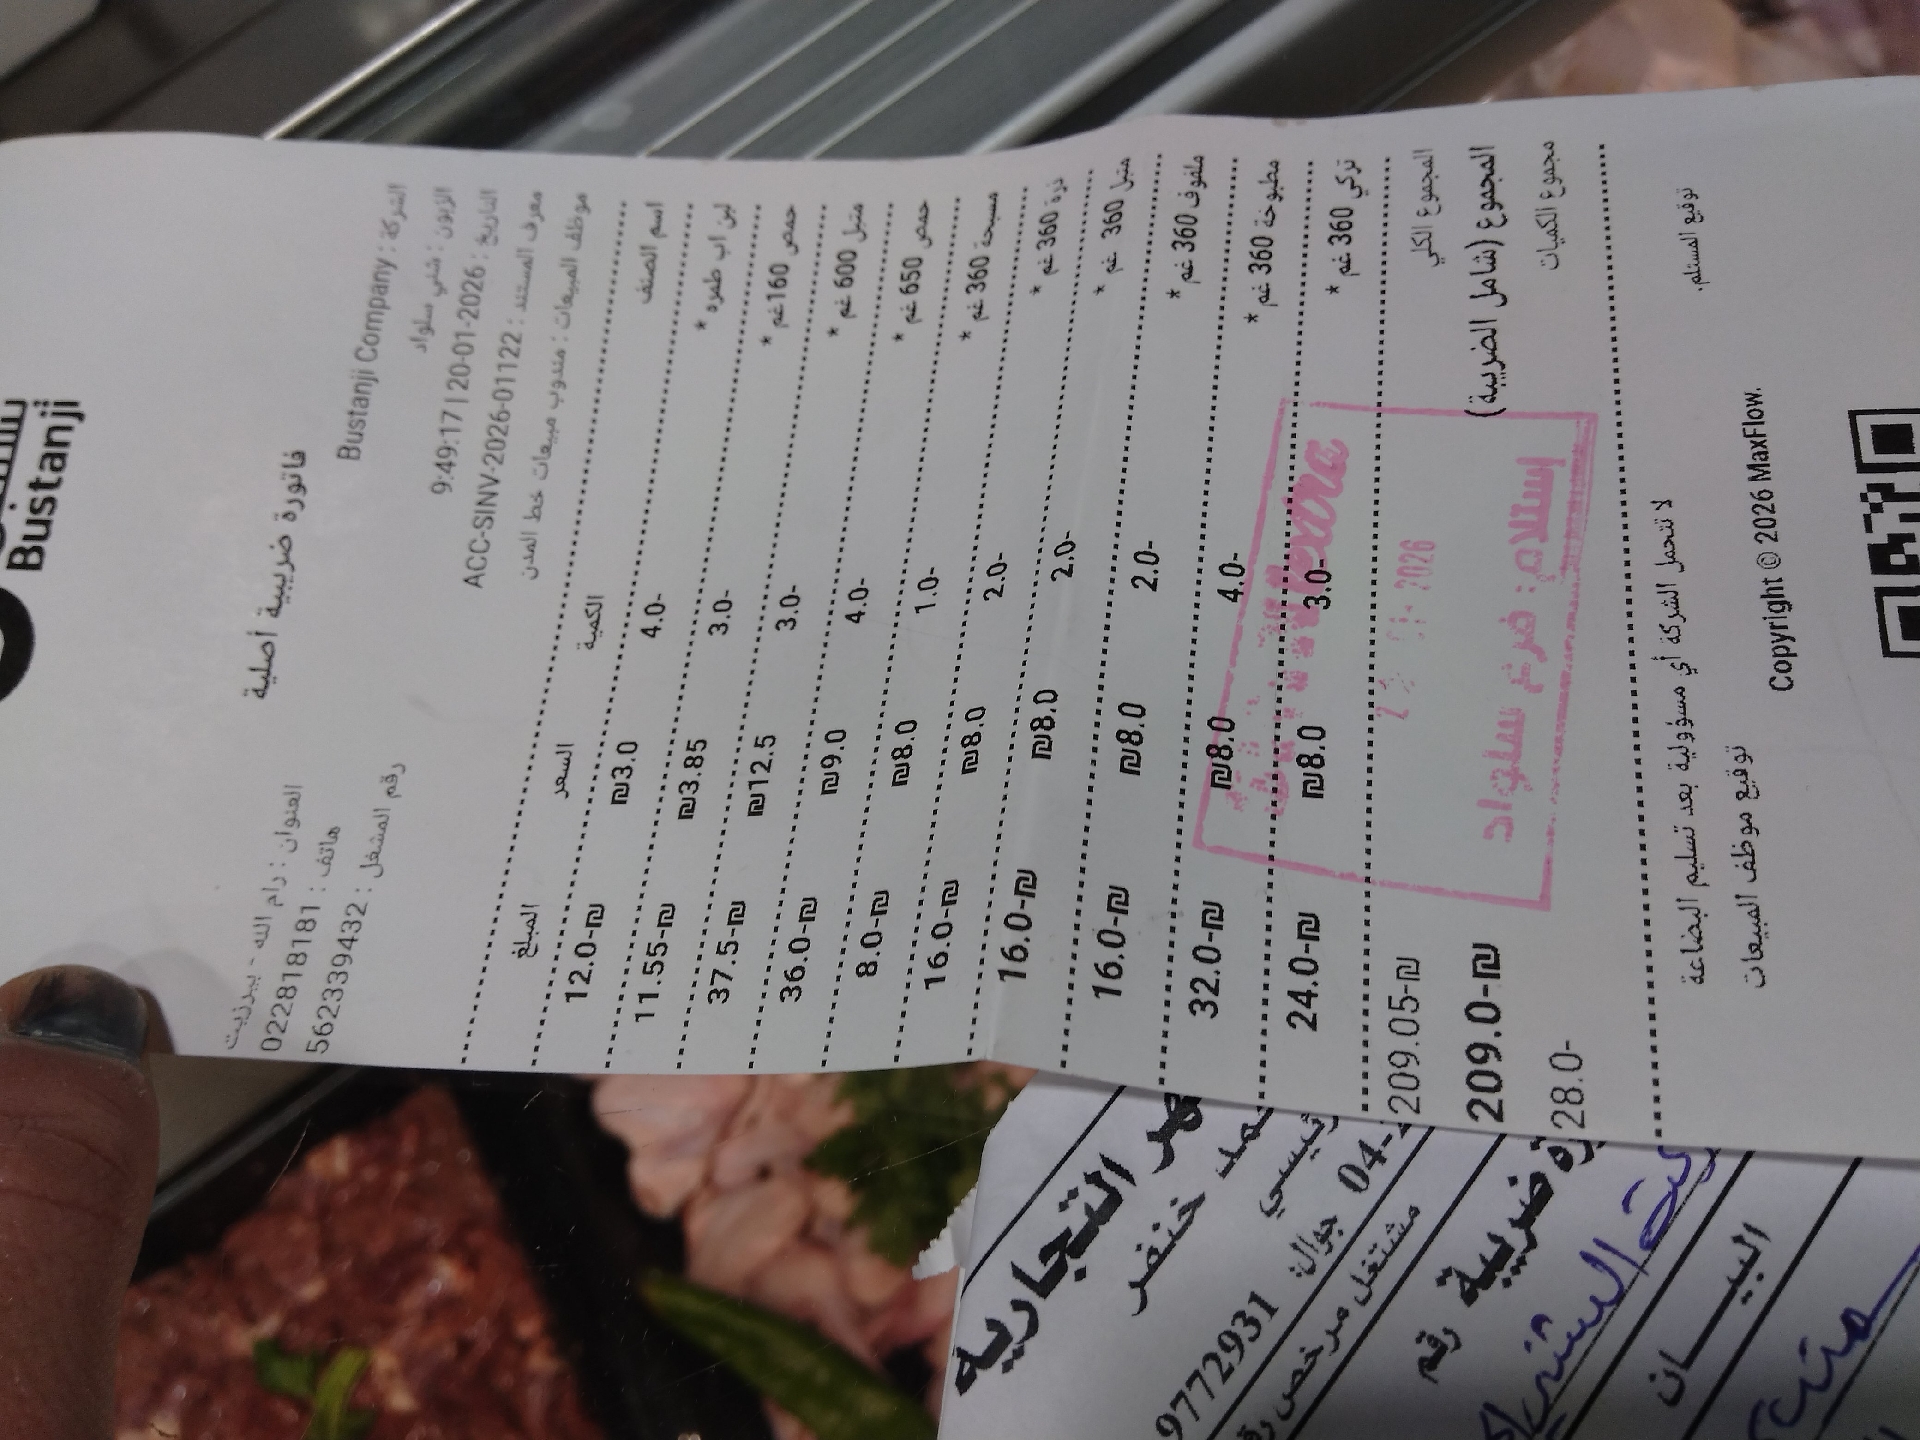 Bustanji
فاتورة ضريبية أصلية
العنوان : رام الله - بيرزيت
هاتف : 022818181
رقم المشغل : 562339432
الشركة : Bustanji Company
الزبون : شني سلواد
التاريخ : 2026-01-20 | 9:49:17
معرف المستند : ACC-SINV-2026-01122
موظف المبيعات : مندوب مبيعات خط المدن
اسم الصنف الكمية السعر المبلغ
لبن اب طمره * 4.0- ₪3.0 12.0-₪
حمص 160غم * 3.0- ₪3.85 11.55-₪
متبل 600 غم * 3.0- ₪12.5 37.5-₪
حمص 650 غم * 4.0- ₪9.0 36.0-₪
مسبحة 360 غم * 1.0- ₪8.0 8.0-₪
ذرة 360 غم * 2.0- ₪8.0 16.0-₪
متبل 360 غم * 2.0- ₪8.0 16.0-₪
ملفوف 360 غم * 2.0- ₪8.0 16.0-₪
مطبوخة 360 غم * 4.0- ₪8.0 32.0-₪
تركي 360 غم * 3.0- ₪8.0 24.0-₪
المجموع الكلي 209.05-₪
المجموع (شامل الضريبة) 209.0-₪
مجموع الكميات 28.0-
2026
استلام: فرع سلواد
توقيع المستلم.
لا تتحمل الشركة أي مسؤولية بعد تسليم البضاعة
توقيع موظف المبيعات
Copyright © 2026 MaxFlow.
التجارية
خنفر
9772931 جوال: 04-
مشتغل مرخص
ضريبية رقم
البيـــان